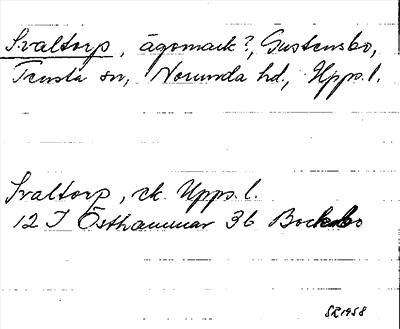 Svaltorp, ägomark?, Gustensbo,
Tensta sn, Norunda hd., Upps.l.
Svaltorp, ek. Upps.l.
12 I Östhammar 36 Bockebo
SR1958